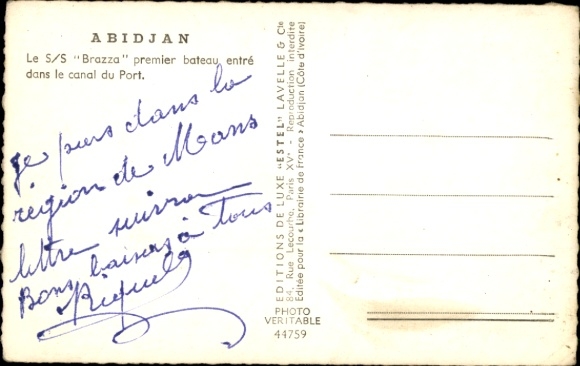 ABIDJAN
Le S/S "Brazza" premier bateau entré
dans le canal du Port.
je pars dans la
région de Mans
lettre suivra
Bons baisers à Tous
EDITIONS DE LUXE "ESTEL" LAVELLE & Cie
84, Rue Lecourbe, Paris XVe - Reproduction interdite
Editée pour la « Librairie de France » Abidjan (Côte d'Ivoire)
PHOTO
VERITABLE
44759